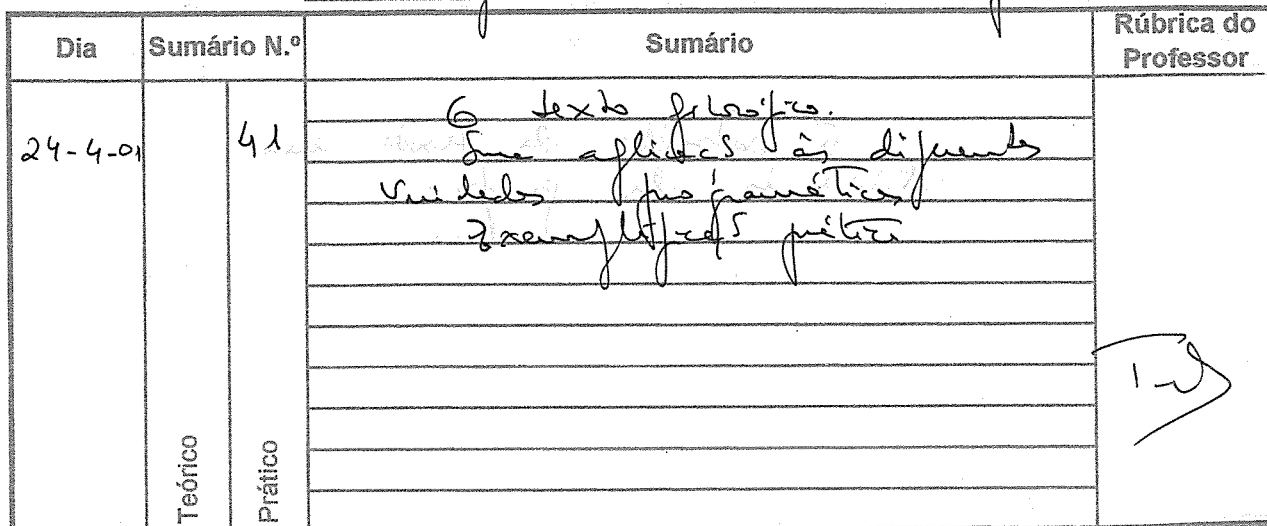 Dia Sumário N.º Sumário Rúbrica do Professor
24-4-01 41 O texto filosófico.
Sua aplicação às diferentes
Unidades programáticas
Exemplificação prática
Teórico Prático